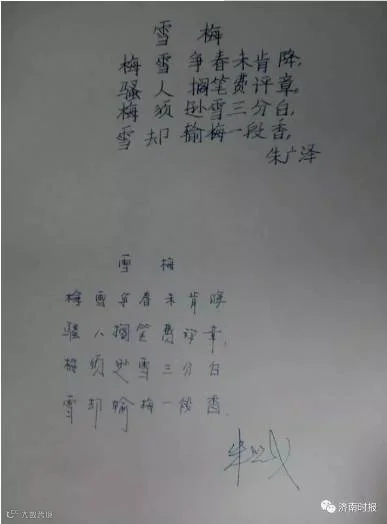 雪 梅
梅雪争春未肯降,
骚人搁笔费评章。
梅须逊雪三分白,
雪却输梅一段香.
朱广泽
雪 梅
梅雪争春未肯降
骚人搁笔费评章,
梅须逊雪三分白
雪却输梅一段香.
大数跨境
济南时报